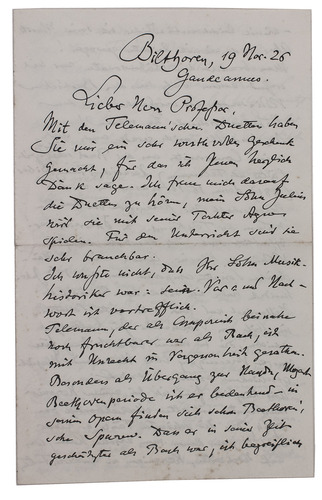 Bilthoven, 19 Nov. 26
Gaudeamus.
Lieber Herr Professor.
Mit den Telemann'schen Duetten haben
Sie mir ein sehr wertvolles Geschenk
gemacht, für das ich Ihnen herzlich
Dank sage. Ich freue mich darauf
die Duetten zu hören, mein Sohn Julius
wird sie mit seiner Tochter
spielen. Für den Unterricht sind sie
sehr brauchbar.
Ich wusste nicht, dass Ihr Sohn Musik-
historiker war: sein Vor- und Nach-
wort ist vortrefflich.
Telemann, der als Componist beinahe
noch fruchtbarer war als Bach, ist
mit Unrecht in Vergessenheit geraten.
Besonders als Übergang zur Haydn, Mozart
Beethovenperiode ist er bedeutend - in
seinen Opern finden sich schon Beethoven'
sche Spuren. Dass er in seiner Zeit
geschätzter als Bach war, ist begreiflich